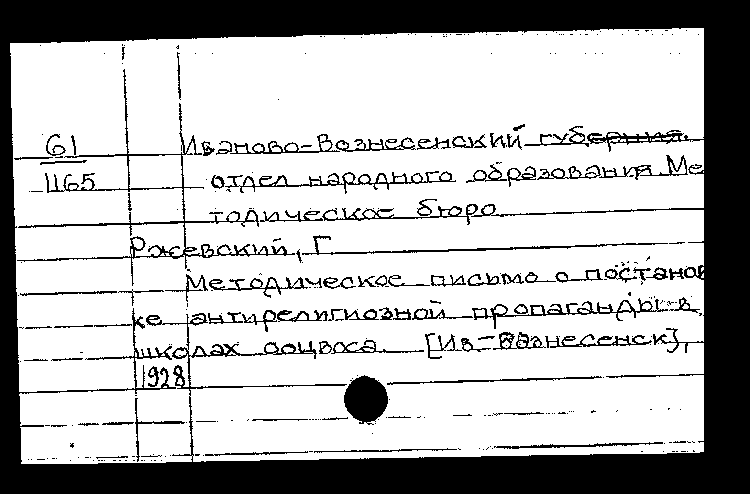 61
1165
Иваново-Вознесенский губерния.
отдел народного образования. Ме
тодическое бюро
Ржевский, Г.
Методическое письмо о постанов
ке антирелигиозной пропаганды в
школах соцвоса. [Ив-Вознесенск],
1928